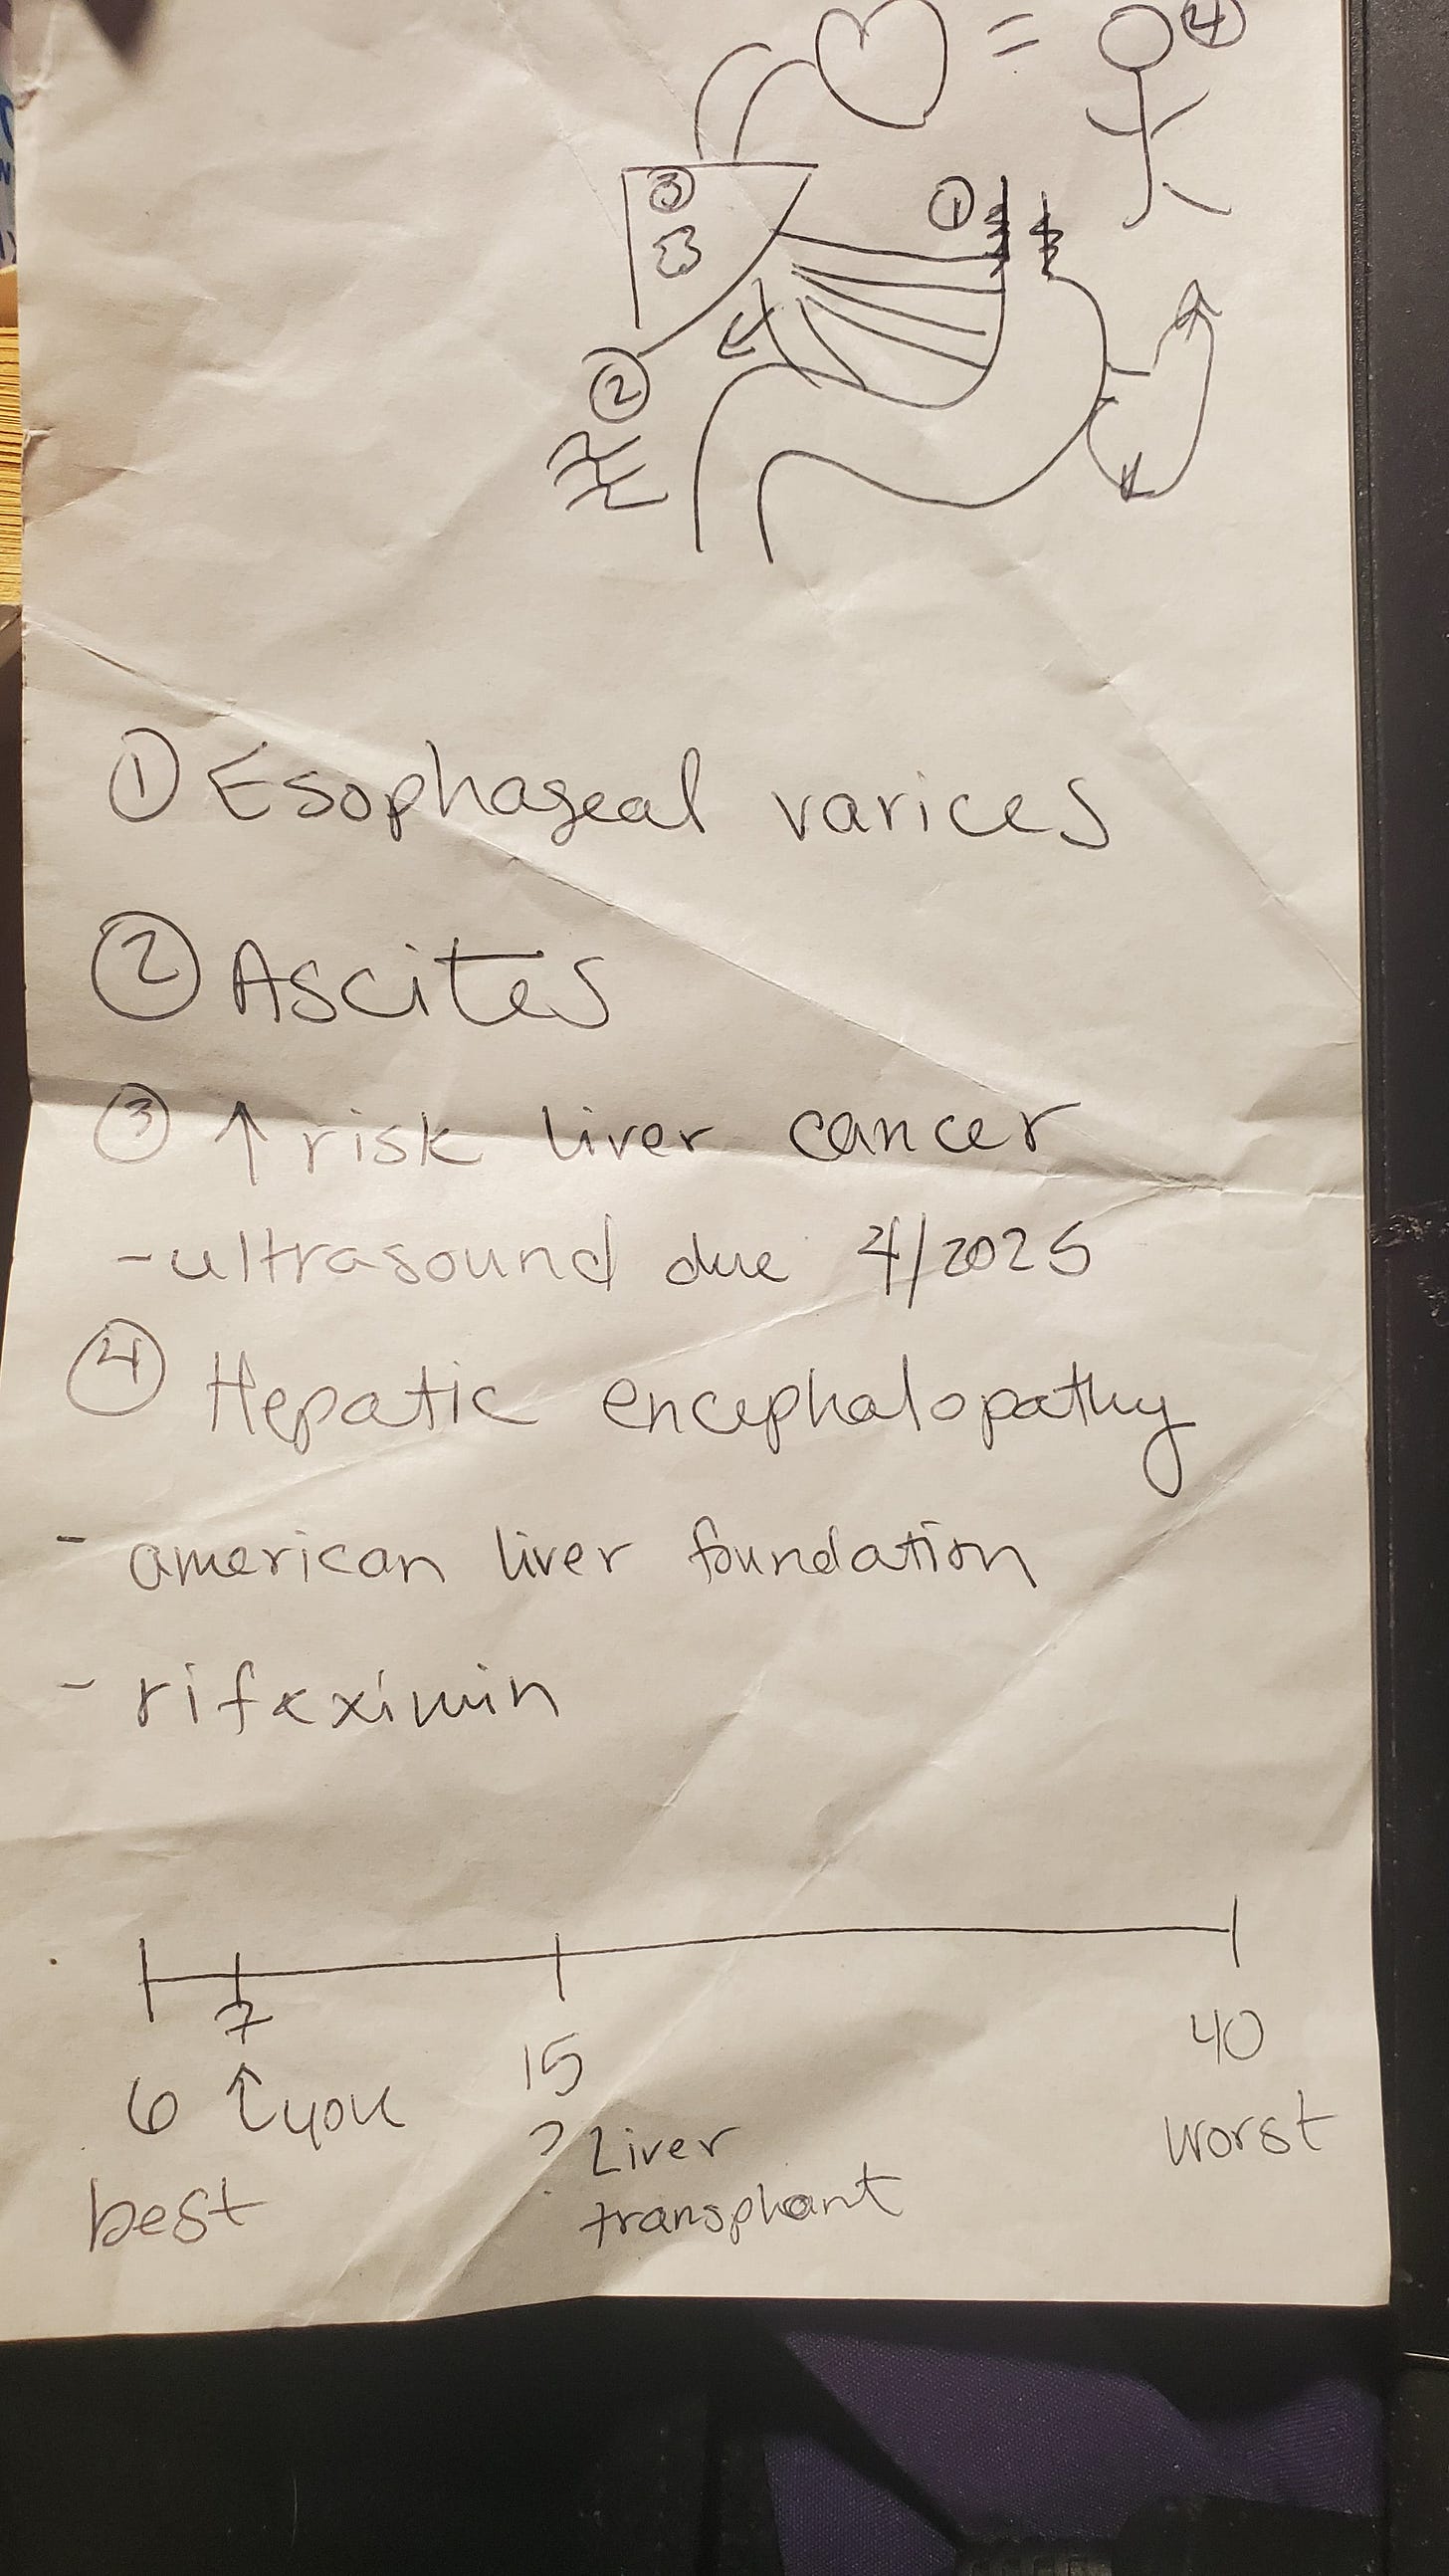 ④
③
①
②
① Esophageal varices
② Ascites
③ ↑ risk liver cancer
- ultrasound due 4/2025
④ Hepatic encephalopathy
- american liver foundation
- rifaximin
7
15
40
6 ↑ you
? Liver
worst
best
transplant